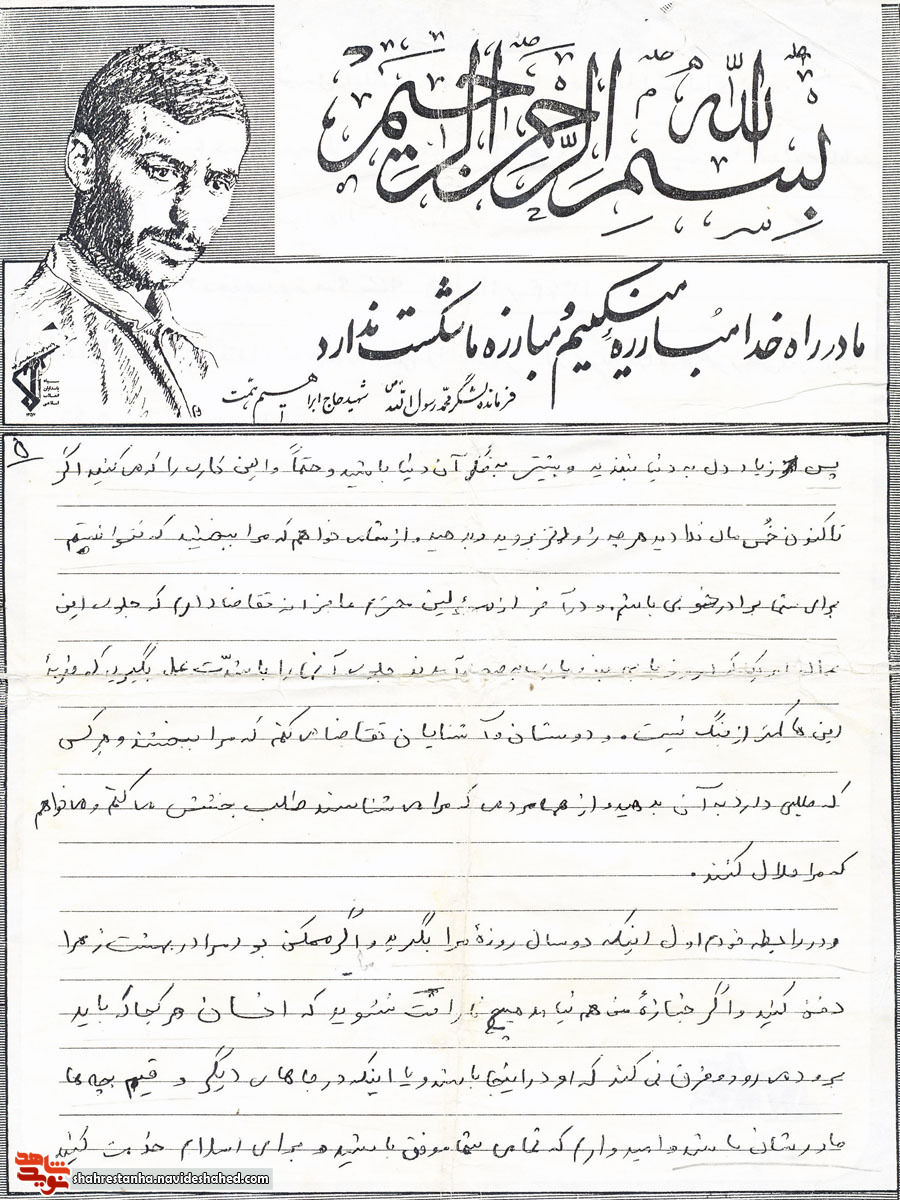 بسم الله الرحمن الرحیم
ما در راه خدا مبارزه میکنیم و مبارزه ما شکست ندارد
فرمانده لشگر محمد رسول الله (ص) شهید حاج ابراهیم همت
سپاه پاسداران انقلاب اسلامی
۵
پس زیاد دل به دنیا نبندید و بیشتر به فکر آن دنیا باشید و حتماً و این کاری را که می کنید اگر
تا کنون خمس مال ندادید هر چه زودتر بروید و بدهید و از شما می خواهم که مرا ببخشید که نتوانستم
برای شما برادر خوبی باشم. و در آخر از مسئولین محترم عاجزانه تقاضا دارم که جلوی این
جلوی آنها را با شدّت عمل بگیرید که ضربهٔ
این ها کمتر از جنگ نیست. و دوستان و آشنایان تقاضا می کنم که مرا ببخشند و هر کسی
که طلبی دارد به آنی بدهید و از همه مردمی که مرا می شناسند طلب بخشش می کنم و می خواهم
که مرا حلال کنند.
و در رابطه خودم اول اینکه دو سال روزهٔ مرا بگیرید و اگر ممکن بود مرا در بهشت زهرا
دفن کنید و اگر جنازهٔ من هم نیامد هیچ ناراحت نشوید که انسان هر کجا که باید
برود می رود و فرقی نمی کند که او در اینجا باشد و یا اینکه در جاهای دیگر و قیم بچه ها
مادرشان باشد و امیدوارم که تمامی شما موفق باشید و برای اسلام خدمت کنید
نوید شاهد
shahrestanha.navideshahed.com